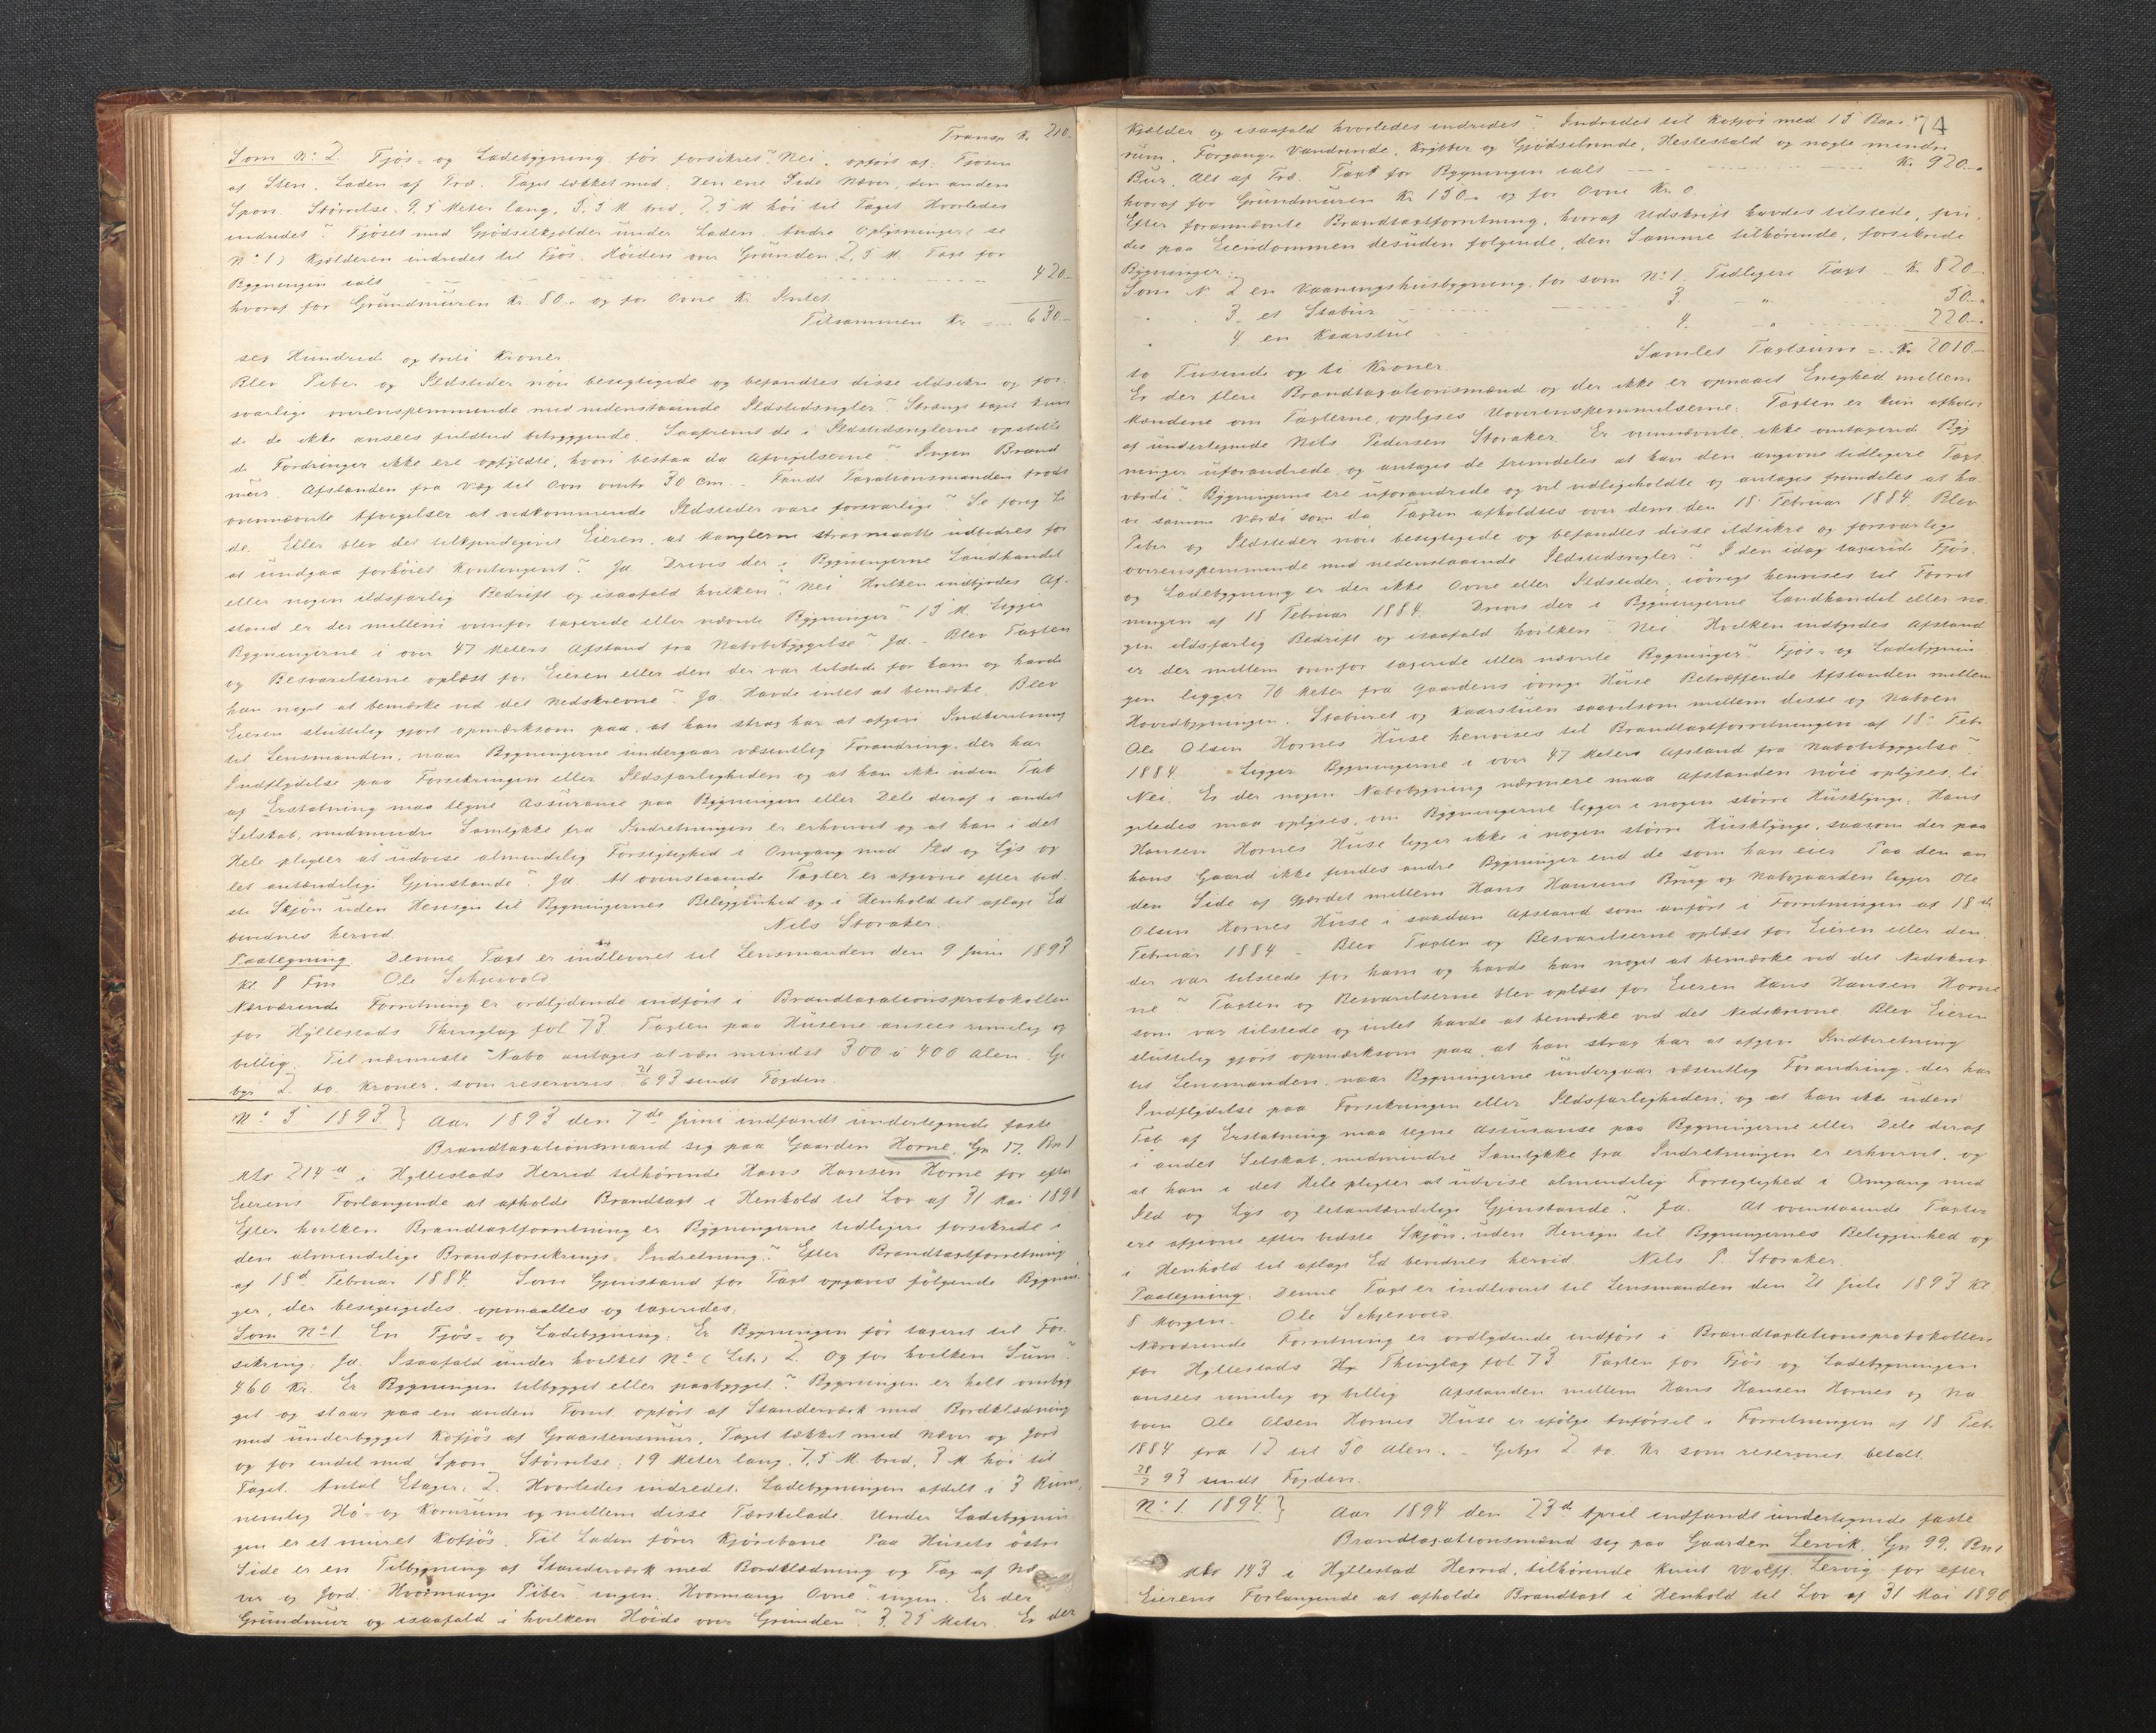 Transp. Kr. 210.
Som No. 2 Fjøs- og Ladebygning før forsikret? Nei, opført af: Fjøsen
af Sten, Laden af Træ. Taget tækket med: Den ene Side Næver, den anden
Spon. Størrelse: 9,5 Meter lang, 5,5 M. bred, 2,5 M. høi til Taget. Hvorledes
indredet? Fjøset med Gjødselkjelder under Laden. Andre Oplysninger (se
No. 1) Kjælderen indredet til Fjøs. Høiden over Grunden 2,5 M. Taxt for
Bygningen ialt 420.-
hvoraf for Grundmuren Kr. 80.- og for Ovne Kr. Intet.
Tilsammen Kr. 630.-
sex Hundrede og treti Kroner.
Blev Piber og Ildsteder nøie besigtigede og befandtes disse ildsikre og for-
svarlige overensstemmende med nedenstaaende Ildstedsregler? Strængt taget kun
de de ikke ansees fuldtud betryggende. Saafremt de i Ildstedsreglerne opstille
de Fordringer ikke ere opfyldte, hvori bestaa da Afvigelserne? Ingen Brand
mur. Afstanden fra Væg til Ovn omtr. 30 cm. Fandt Taxationsmanden trods
ovennævnte Afvigelser at vedkommende Ildsteder vare forsvarlige? Se foreg. Si
de. Eller blev det tilkjendegivet Eieren, at Manglerne strax maatte udbedres for
at undgaa forhøiet Kontingent? Ja. Drives der i Bygningerne Landhandel
eller nogen ildsfarlig Bedrift og isaafald hvilken? Nei. Hvilken indbyrdes Af-
stand er der mellem ovenfor taxerede eller nævnte Bygninger? 15 M. Ligger
Bygningerne i over 47 Meters Afstand fra Nabobebyggelse? Ja. - Blev Taxten
og Besvarelserne oplæst for Eieren eller den der var tilstede for ham og havde
han noget at bemærke ved det Nedskrevne? Ja. Havde intet at bemærke. Blev
Eieren sluttelig gjort opmærksom paa, at han strax har at afgive Indberetning
til Lensmanden, naar Bygningerne undergaar væsentlig Forandring, der har
Indflydelse paa Forsikringen eller Ildsfarligheden og at han ikke uden Tab
af Erstatning maa tegne Assurance paa Bygningen eller Dele deraf i andet
Selskab, medmindre Samtykke fra Indretningen er erhvervet og at han i det
Hele pligter at udvise almindelig Forsigtighed i Omgang med Ild og Lys og
let antændelige Gjenstande? Ja. At ovenstaaende Taxter er afgivne efter bed-
ste Skjøn uden Hensyn til Bygningernes Beliggenhed og i Henhold til aflagt Ed
bevidnes herved. Nils Storaker.
Paategning. Denne Taxt er indleveret til Lensmanden den 9 Juni 1893
Kl. 8 Fm. Ole Schesvold
Nærværende Forretning er ordlydende indført i Brandtaxationsprotokollen
for Hyllestads Thinglag fol 73. Taxten paa Husene ansees rimelig og
billig. Til nærmeste Nabo antages at være mindst 300 à 400 Alen. Ge
byr 2 to Kroner, som reserveres. 21/6 93 sendt Fogden.
No. 5 1893. } Aar 1893 den 7de Juni indfandt undertegnede faste
Brandtaxationsmand sig paa Gaarden Horne, Gn 17, Bn 1
Mtr 214a i Hyllestads Herred tilhørende Hans Hansen Horne for efter
Eierens Forlangende at afholde Brandtaxt i Henhold til Lov af 31 Mai 1890
Efter hvilken Brandtaxtforretning er Bygningerne tidligere forsikrede i
den almindelige Brandforsikrings-Indretning? Efter Brandtaxtforretning
af 18d Februar 1884. Som Gjenstand for Taxt opgaves følgende Bygnin-
ger, der besigtigedes, opmaaltes og taxeredes:
Som No. 1. En Fjøs- og Ladebygning. Er Bygningen før taxeret til For-
sikring: Ja. Isaafald under hvilket No. (Litr.) 2. Og for hvilken Sum?
460 Kr. Er Bygningen tilbygget eller paabygget? Bygningen er helt ombyg
get og staar paa en anden Tomt, opført af Standerværk med Bordklædning
med underbygget Kofjøs af Graastensmur. Taget tækket med Næver og Jord
og for endel med Spon. Størrelse: 19 Meter lang, 7,5 M. bred, 3 M. høi til
Taget. Antal Etager: 2. Hvorledes indredet: Ladebygningen afdelt i 3 Rum,
nemlig Hø- og Kornrum og mellem disse Tærskelade. Under Ladebygnin
gen er et muret Kofjøs. Til Laden fører Kjørebane. Paa Husets østre
Side er en Tilbygning af Standerværk med Bordklædning og Tag af Næ
ver og Jord. Hvormange Piber? ingen. Hvormange Ovne? ingen. Er der
Grundmur og isaafald i hvilken Høide over Grunden? 3,25 Meter. Er der
74
Kjælder og isaafald hvorledes indredet? Indredet til Kofjøs med 15 Baas-
rum, Forgang, Vandrende, Krybber og Gjødselrende, Hestestald og nogle mindre
Bur, Alt af Træ. Taxt for Bygningen ialt Kr. 920.-
hvoraf for Grundmuren Kr. 150.- og for Ovne Kr. 0
Efter forannævnte Brandtaxtforretning, hvoraf Udskrift havdes tilstede, fin-
des paa Eiendommen desuden følgende, den Samme tilhørende, forsikrede
Bygninger:
Som No. 2 en Vaaningshusbygning, før som No. 1. Tidligere Taxt Kr. 820.-
" 3. et Stabur 3. " 50.-
" 4 en Kaarstue 4. " 220.-
Samlet Taxtsum = Kr. 2010.-
to Tusende og ti Kroner.
Er der flere Brandtaxationsmænd og der ikke er opnaaet Enighed mellem
Mændene om Taxterne, oplyses Uoverensstemmelserne: Taxten er kun afholdt
af undertegnede Nils Pedersen Storaker. Er ovennævnte, ikke omtaxerede Byg
ninger uforandrede, og antages de fremdeles at have den angivne tidligere Taxt
værdi? Bygningerne ere uforandrede og vel vedligeholdte og antages fremdeles at ha
ve samme Værdi som da Taxten afholdtes over dem den 18 Februar 1884. Blev
Piber og Ildsteder nøie besigtigede og befandtes disse ildsikre og forsvarlige
overensstemmende med nedenstaaende Ildstedsregler? I den idag taxerede Fjøs
og Ladebygning er der ikke Ovne eller Ildsteder, iøvrigt henvises til Forret
ningen af 18 Februar 1884. Drives der i Bygningerne Landhandel eller no
gen ildsfarlig Bedrift og isaafald hvilken? Nei. Hvilken indbyrdes Afstand
er der mellem ovenfor taxerede eller nævnte Bygninger? Fjøs- og Ladebygnin
gen ligger 70 Meter fra Gaardens øvrige Huse. Betræffende Afstanden mellem
Hovedbygningen, Staburet og Kaarstuen saavelsom mellem disse og Naboen
Ole Olsen Hornes Huse henvises til Brandtaxtforretningen af 18 Feb.
1884. Ligger Bygningerne i over 47 Meters Afstand fra Nabobebyggelse?
Nei. Er der nogen Nabobygning nærmere maa Afstanden nøie oplyses, li
geledes maa oplyses, om Bygningerne ligger i nogen større Husklynge. Hans
Hansen Hornes Huse ligger ikke i nogen større Husklynge, saasom der paa
hans Gaard ikke findes andre Bygninger end de som han eier. Paa den an
den Side af Gjærdet mellem Hans Hansens Brug og Nabogaarden ligger Ole
Olsen Hornes Huse i saadan Afstand som anført i Forretningen af 18de
Februar 1884. - Blev Taxten og Besvarelserne oplæst for Eieren eller den
der var tilstede for ham og havde han noget at bemærke ved det Nedskrev
ne? Taxten og Besvarelserne blev oplæst for Eieren Hans Hansen Horne
som var tilstede og intet havde at bemærke ved det Nedskrevne. Blev Eieren
sluttelig gjort opmærksom paa, at han strax har at afgive Indberetning
til Lensmanden, naar Bygningerne undergaar væsentlig Forandring, der har
Indflydelse paa Forsikringen eller Ildsfarligheden, og at han ikke uden
Tab af Erstatning maa tegne Assuranse paa Bygningerne eller Dele deraf
i andet Selskab, medmindre Samtykke fra Indretningen er erhvervet, og
at han i det Hele pligter at udvise almindelig Forsigtighed i Omgang med
Ild og Lys og letantændelige Gjenstande? Ja. At ovenstaaende Taxter
ere afgivne efter bedste Skjøn, uden Hensyn til Bygningernes Beliggenhed og
i Henhold til aflagt Ed bevidnes herved. Nils P. Storaker.
Paategning: Denne Taxt er indleveret til Lensmanden den 21 Juli 1893 Kl
8 Morgen. Ole Schesvold
Nærværende Forretning er ordlydende indført i Brandtaxtationsprotokollen
for Hyllestads Thinglag fol 73. Taxten for Fjøs og Ladebygningen
ansees rimelig og billig. Afstanden mellem Hans Hansen Hornes og Na
boen Ole Olsen Hornes Huse er ifølge Anførsel i Forretningen af 18 Feb.
1884 fra 13 til 50 Alen. - Gebyr 2 to Kr. som reserveres betalt.
28/7 93 sendt Fogden.
No. 1. 1894. } Aar 1894 den 23d April indfandt undertegnede faste
Brandtaxationsmand sig paa Gaarden Lervik, Gn 99, Bn 1
Mtr 143 i Hyllestad Herred, tilhørende Knut Wolff Lervig for efter
Eierens Forlangende at afholde Brandtaxt i Henhold til Lov af 31 Mai 1890